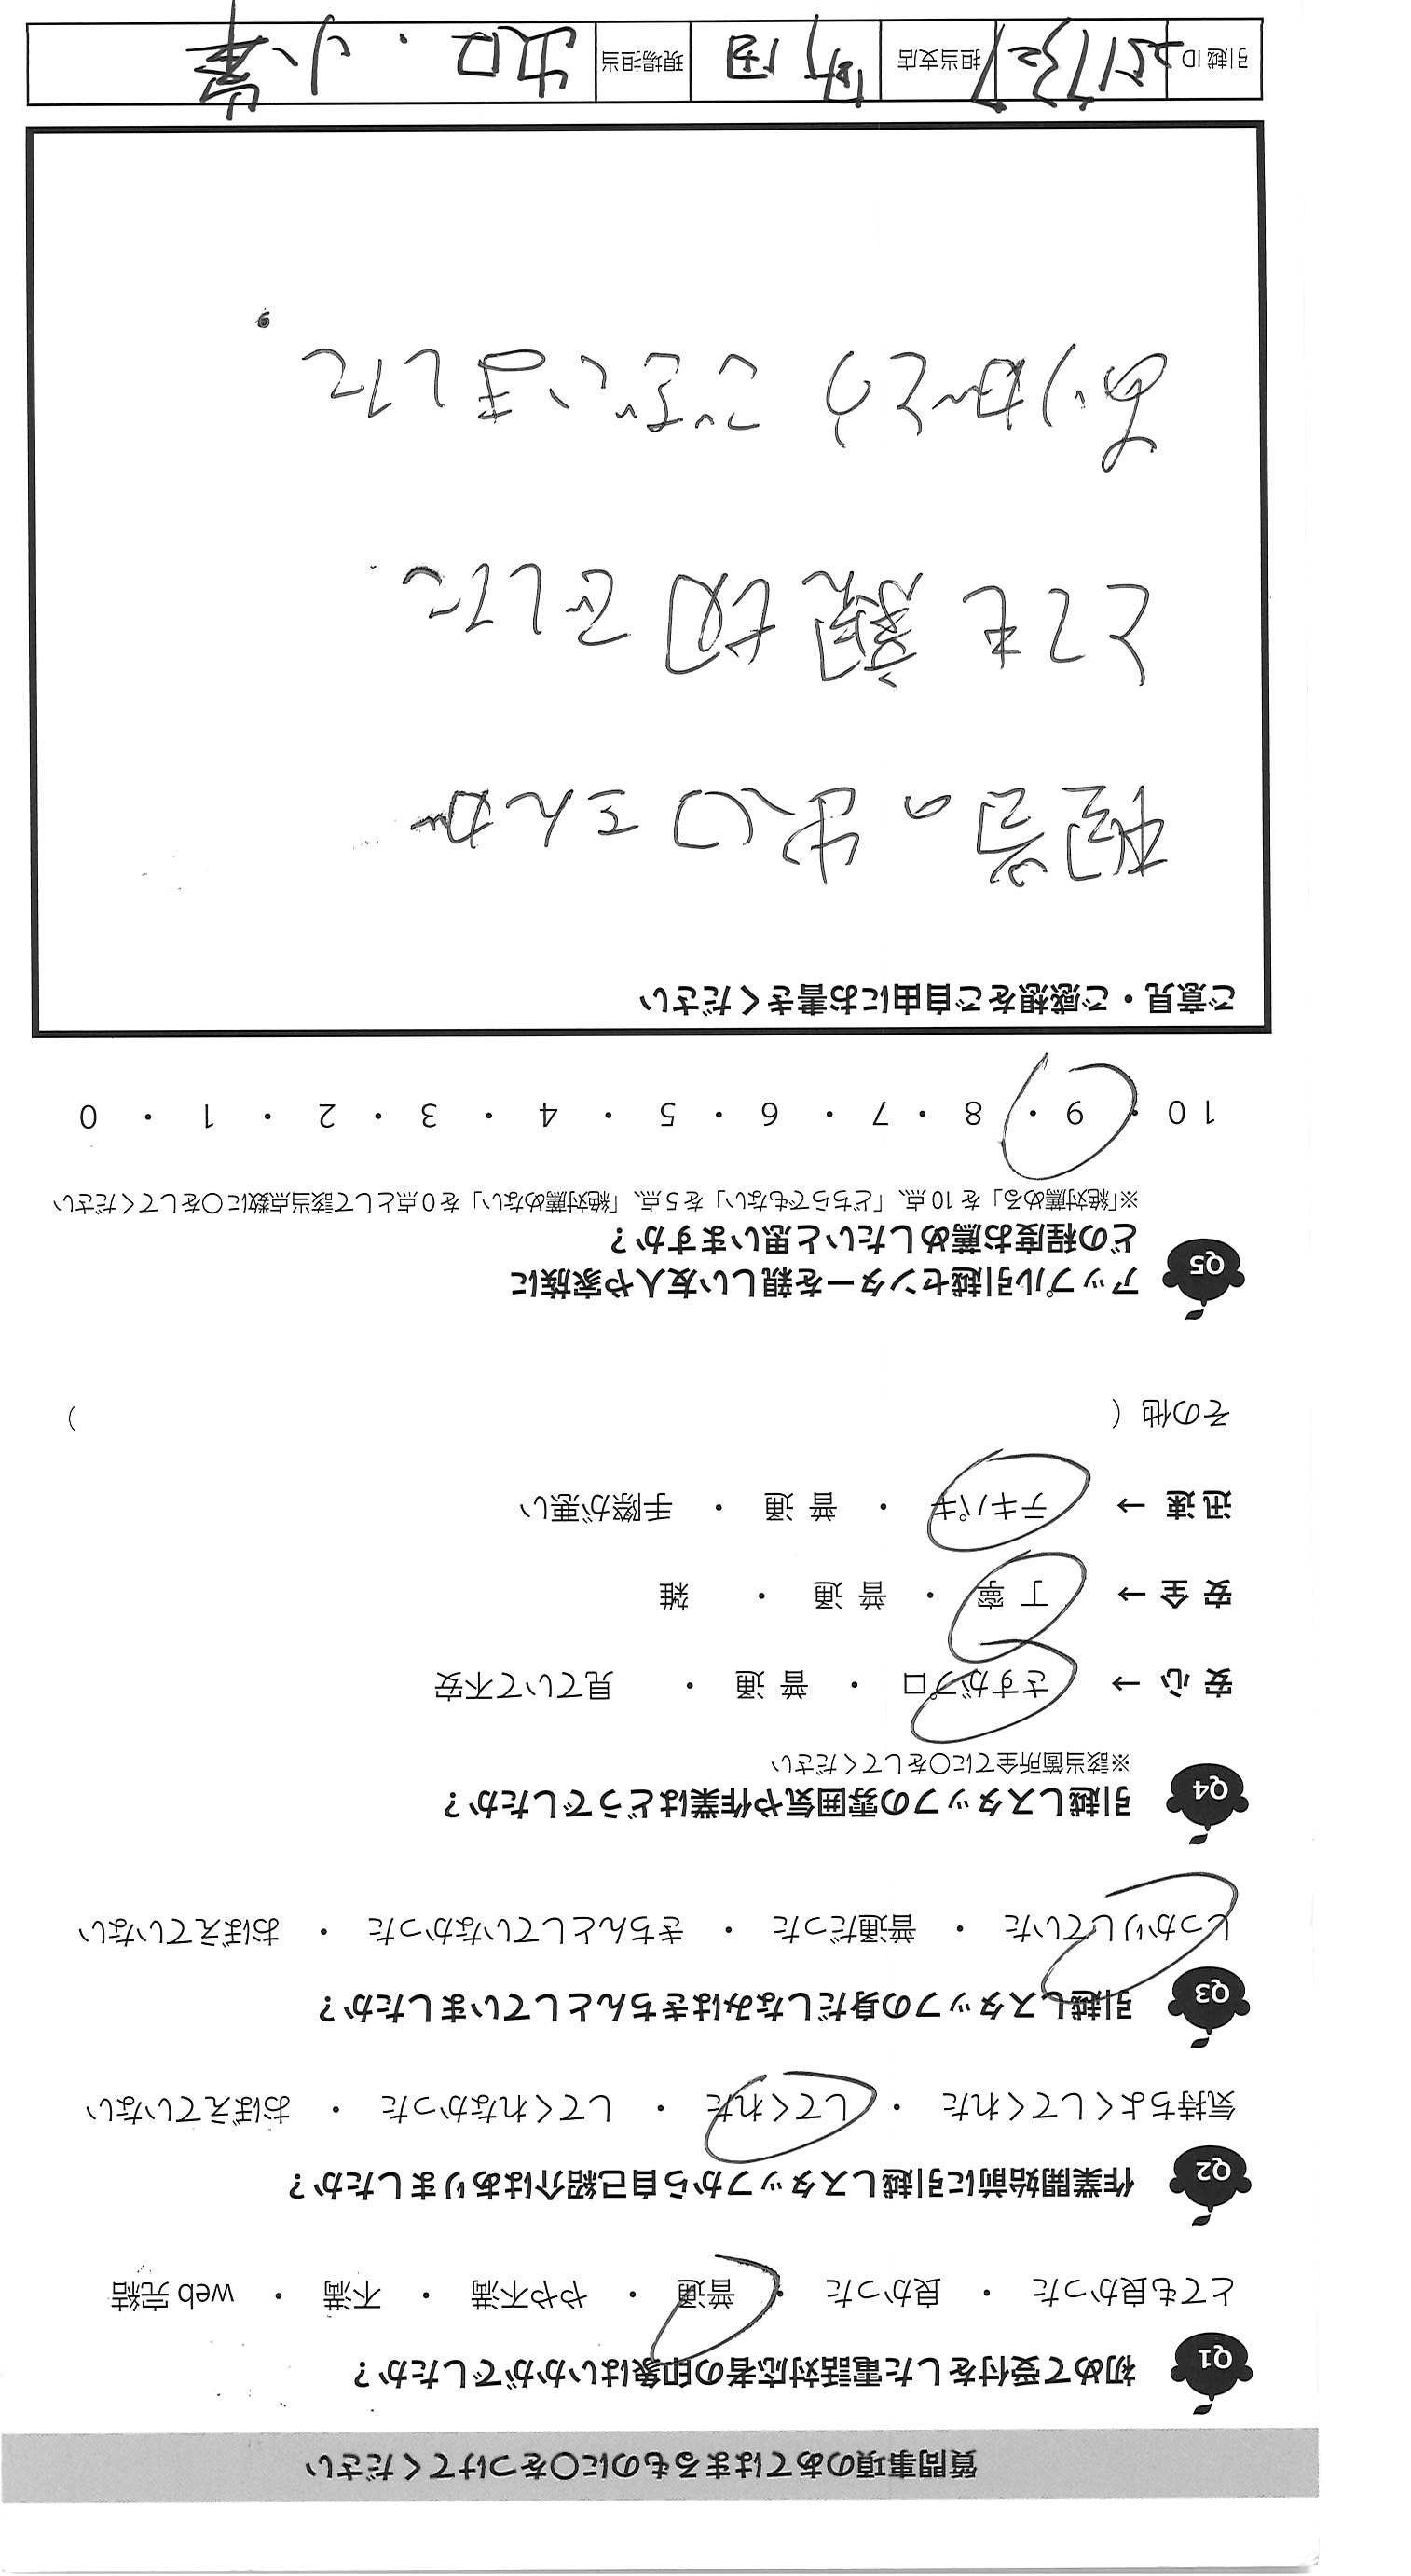 質問事項のあてはまるものに〇をつけてください
Q1 初めて受付をした電話対応者の印象はいかがでしたか？
とても良かった ・ 良かった ・ 普通 ・ やや不満 ・ 不満 ・ web 完結
Q2 作業開始前に引越しスタッフから自己紹介はありましたか？
気持ちよくしてくれた ・ してくれた ・ してくれなかった ・ おぼえていない
Q3 引越しスタッフの身だしなみはきちんとしていましたか？
しっかりしていた ・ 普通だった ・ きちんとしていなかった ・ おぼえていない
Q4 引越しスタッフの雰囲気や作業はどうでしたか？
※該当箇所全てに〇をしてください
安 心 → さすがプロ ・ 普 通 ・ 見ていて不安
安 全 → 丁 寧 ・ 普 通 ・ 雑
迅 速 → テキパキ ・ 普 通 ・ 手際が悪い
その他（ ）
Q5 アップル引越センターを親しい友人や家族に
どの程度お薦めしたいと思いますか？
※「絶対薦める」を 10 点、「どちらでもない」を 5 点、「絶対薦めない」を 0 点として該当点数に〇をしてください
10 ・ 9 ・ 8 ・ 7 ・ 6 ・ 5 ・ 4 ・ 3 ・ 2 ・ 1 ・ 0
ご意見・ご感想をご自由にお書きください
担当の出口さんが
とても親切でした
ありがとうございました。
引越 ID 担当支店 町田 現場担当 出口・小峯